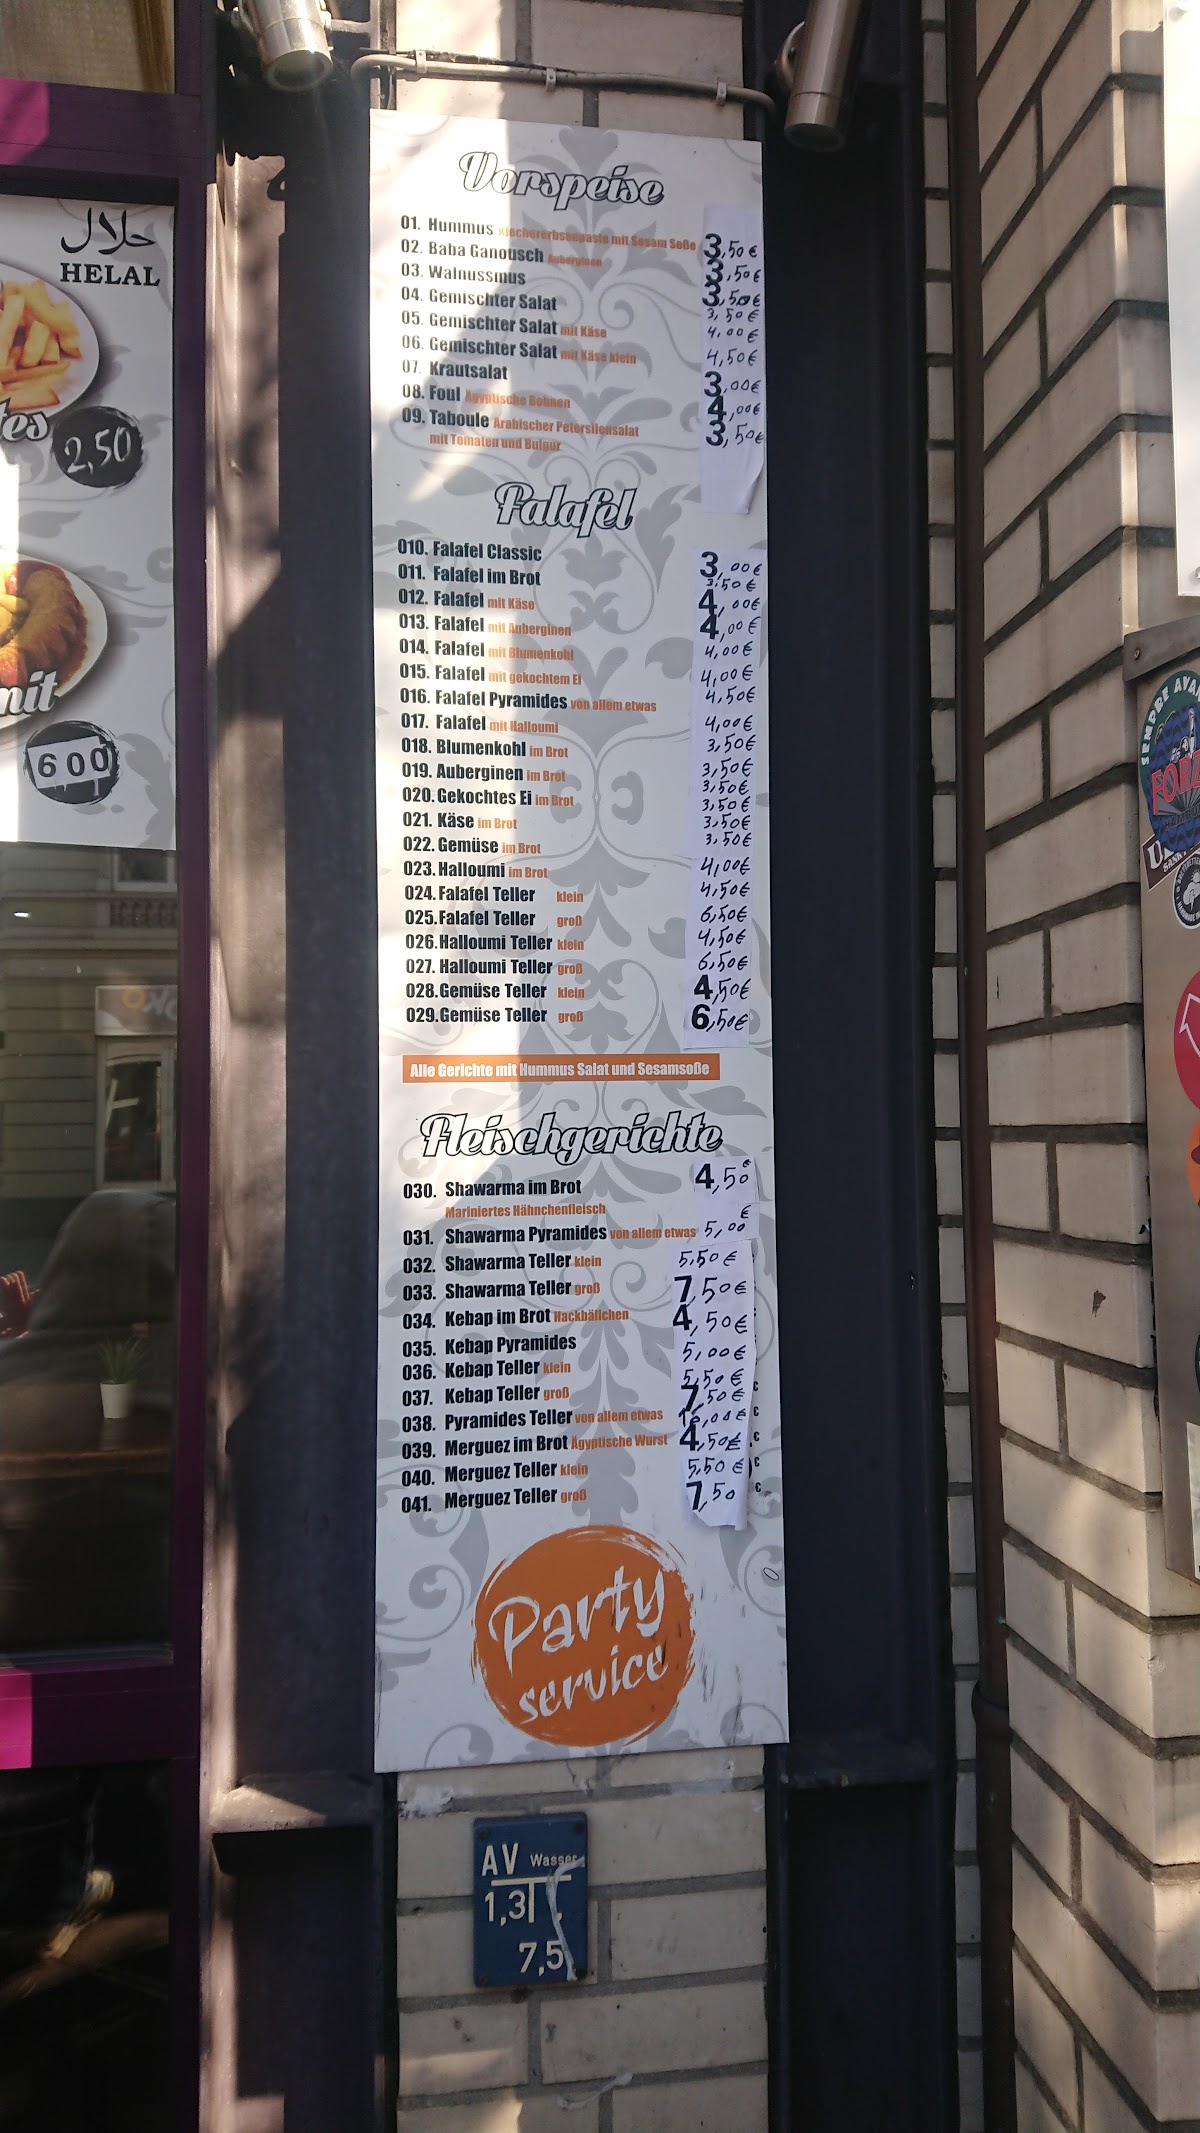 حلال
HELAL
tes
2,50
mit
6 00
Vorspeise
01. Hummus Kiechererbsenpaste mit Sesam Soße 3,50 €
02. Baba Ganousch Auberginen 3,50 €
03. Walnussmus 3,50 €
04. Gemischter Salat 3,50 €
05. Gemischter Salat mit Käse 4,00 €
06. Gemischter Salat mit Käse klein 4,50 €
07. Krautsalat 3,00 €
08. Foul Ägyptische Bohnen 4,00 €
09. Taboule Arabischer Petersiliensalat 3,50 €
mit Tomaten und Bulgur
Falafel
010. Falafel Classic 3,00 €
011. Falafel im Brot 3,50 €
012. Falafel mit Käse 4,00 €
013. Falafel mit Auberginen 4,00 €
014. Falafel mit Blumenkohl 4,00 €
015. Falafel mit gekochtem Ei 4,00 €
016. Falafel Pyramides von allem etwas 4,50 €
017. Falafel mit Halloumi 4,00 €
018. Blumenkohl im Brot 3,50 €
019. Auberginen im Brot 3,50 €
3,50 €
020. Gekochtes Ei im Brot 3,50 €
021. Käse im Brot 3,50 €
022. Gemüse im Brot 3,50 €
023. Halloumi im Brot 4,00 €
024. Falafel Teller klein 4,50 €
025. Falafel Teller groß 6,50 €
026. Halloumi Teller klein 4,50 €
027. Halloumi Teller groß 6,50 €
028. Gemüse Teller klein 4,50 €
029. Gemüse Teller groß 6,50 €
Alle Gerichte mit Hummus Salat und Sesamsoße
Fleischgerichte
030. Shawarma im Brot 4,50 €
Mariniertes Hähnchenfleisch
031. Shawarma Pyramides von allem etwas 5,00 €
032. Shawarma Teller klein 5,50 €
033. Shawarma Teller groß 7,50 €
034. Kebap im Brot Hackbällchen 4,50 €
035. Kebap Pyramides 5,00 €
036. Kebap Teller klein 5,50 €
037. Kebap Teller groß 7,50 € €
038. Pyramides Teller von allem etwas €
039. Merguez im Brot Ägyptische Wurst 4,50 € €
040. Merguez Teller klein 5,50 € €
041. Merguez Teller groß 7,50 €
Party
service
AV Wasser
1,3
7,5
SEMPRE AVA
FORZ